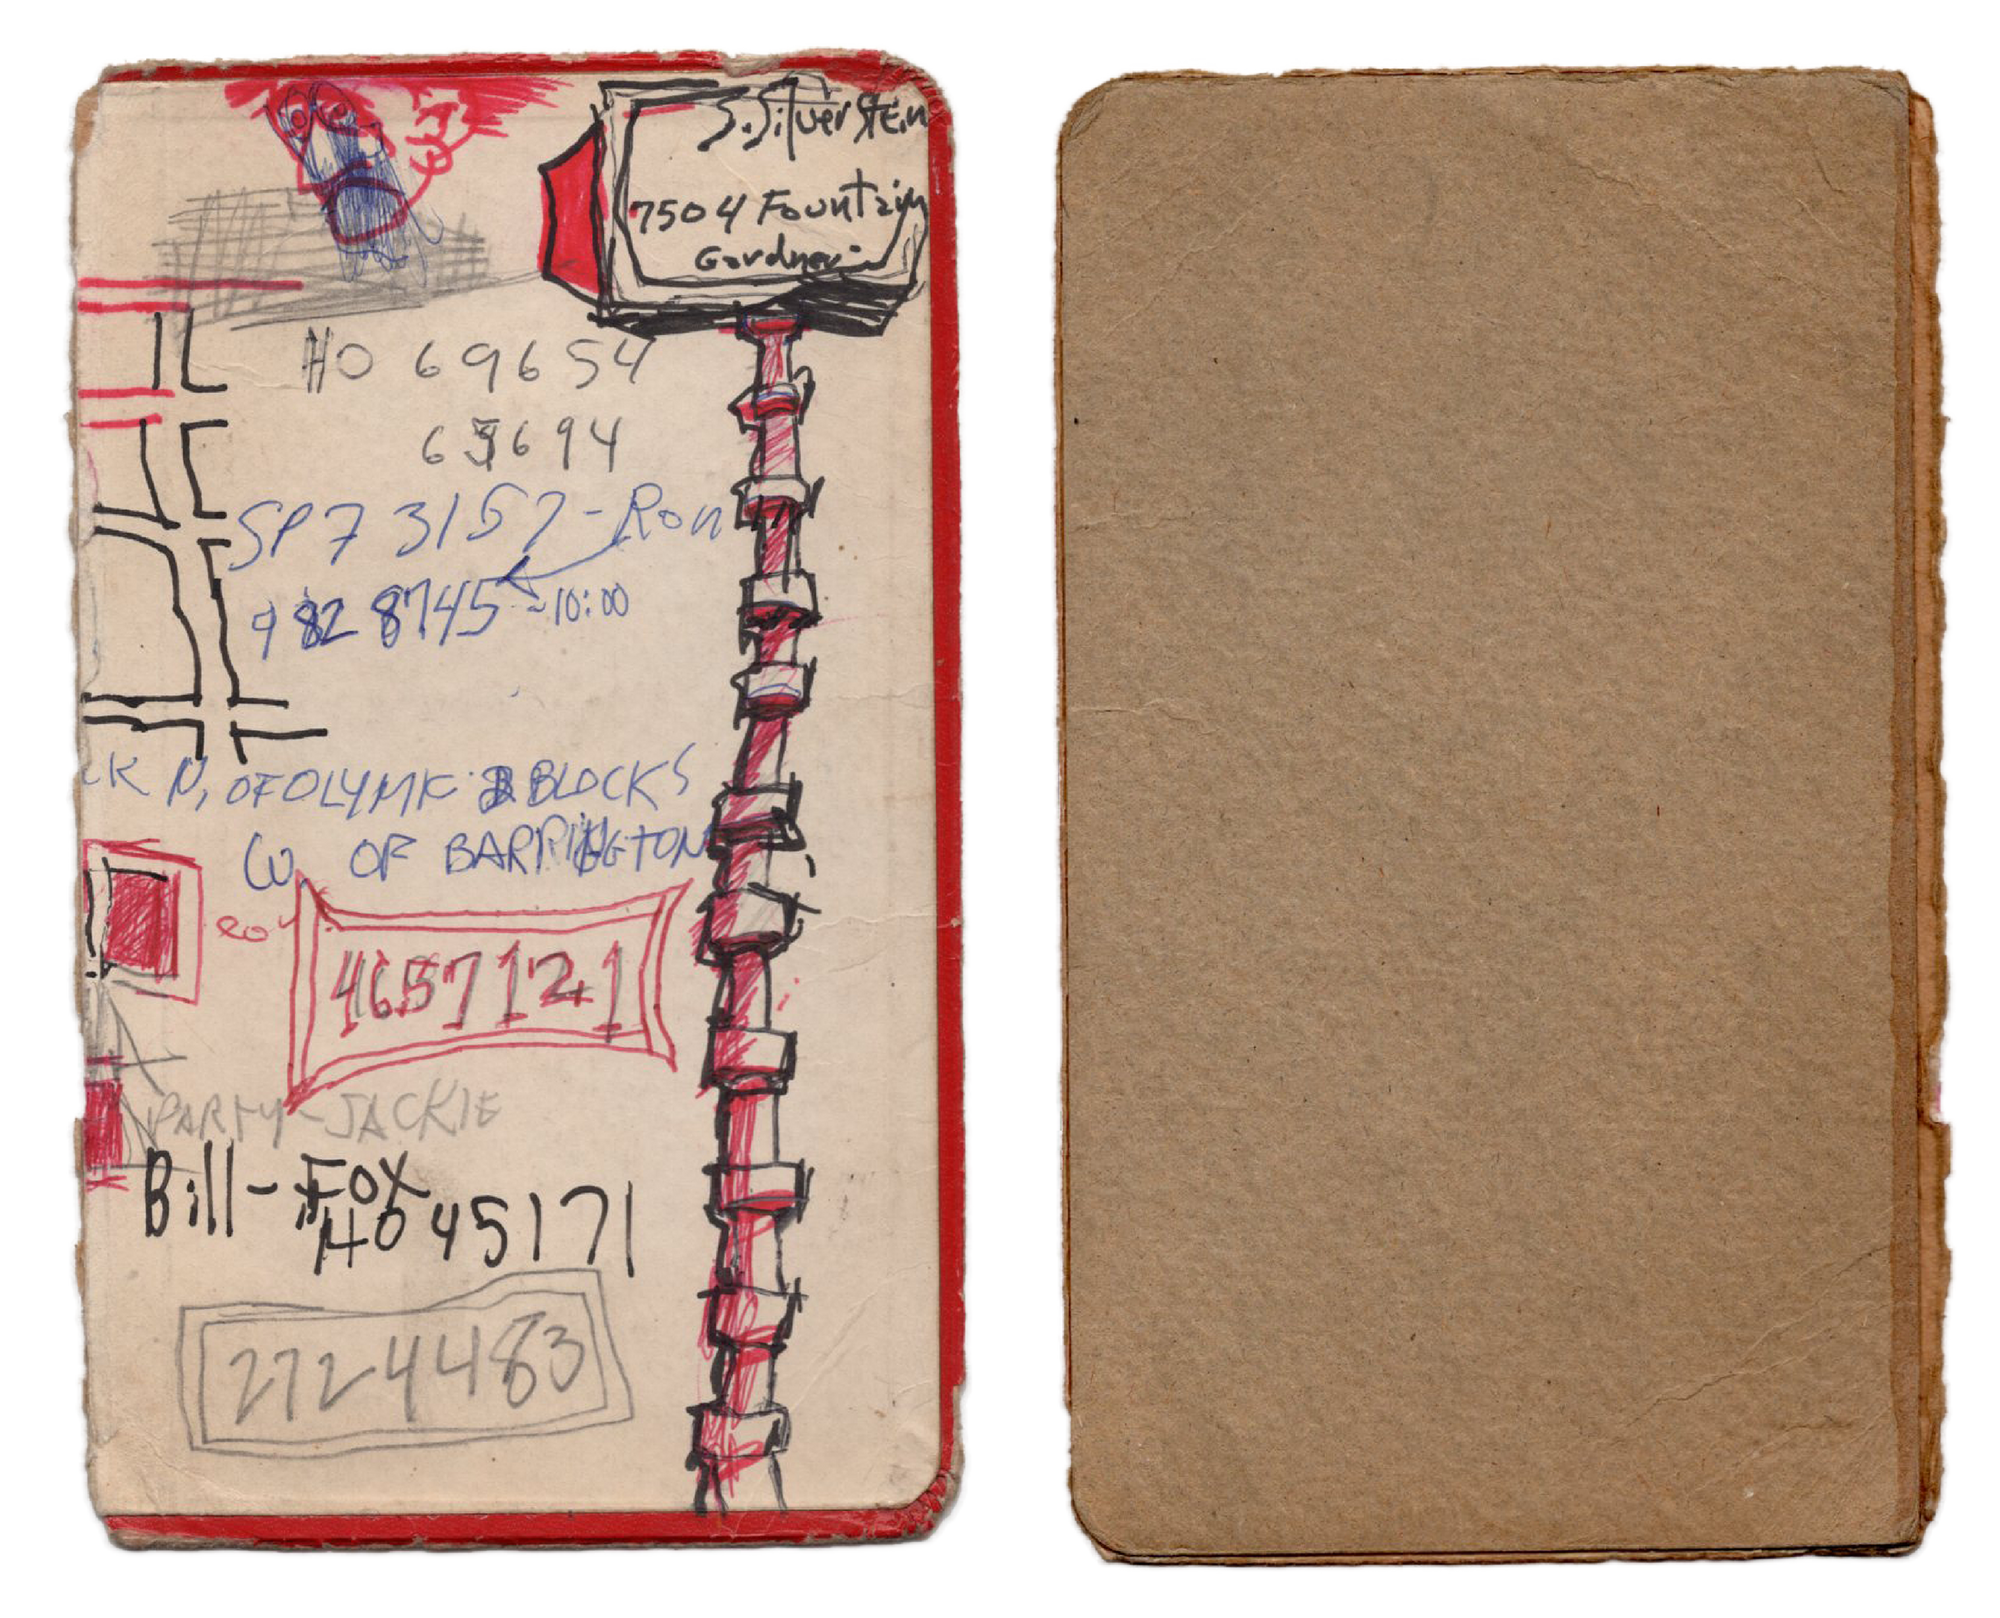 S. Silverstein
7504 Fountain
Gardner
HO 69654
65694
SP7 3157 - Ron
982 8745 - 10:00
N. OF OLYMPIC 2 BLOCKS
W. OF BARRINGTON
4657121
PARTY - JACKIE
Bill - Fox
HO 45171
2724483